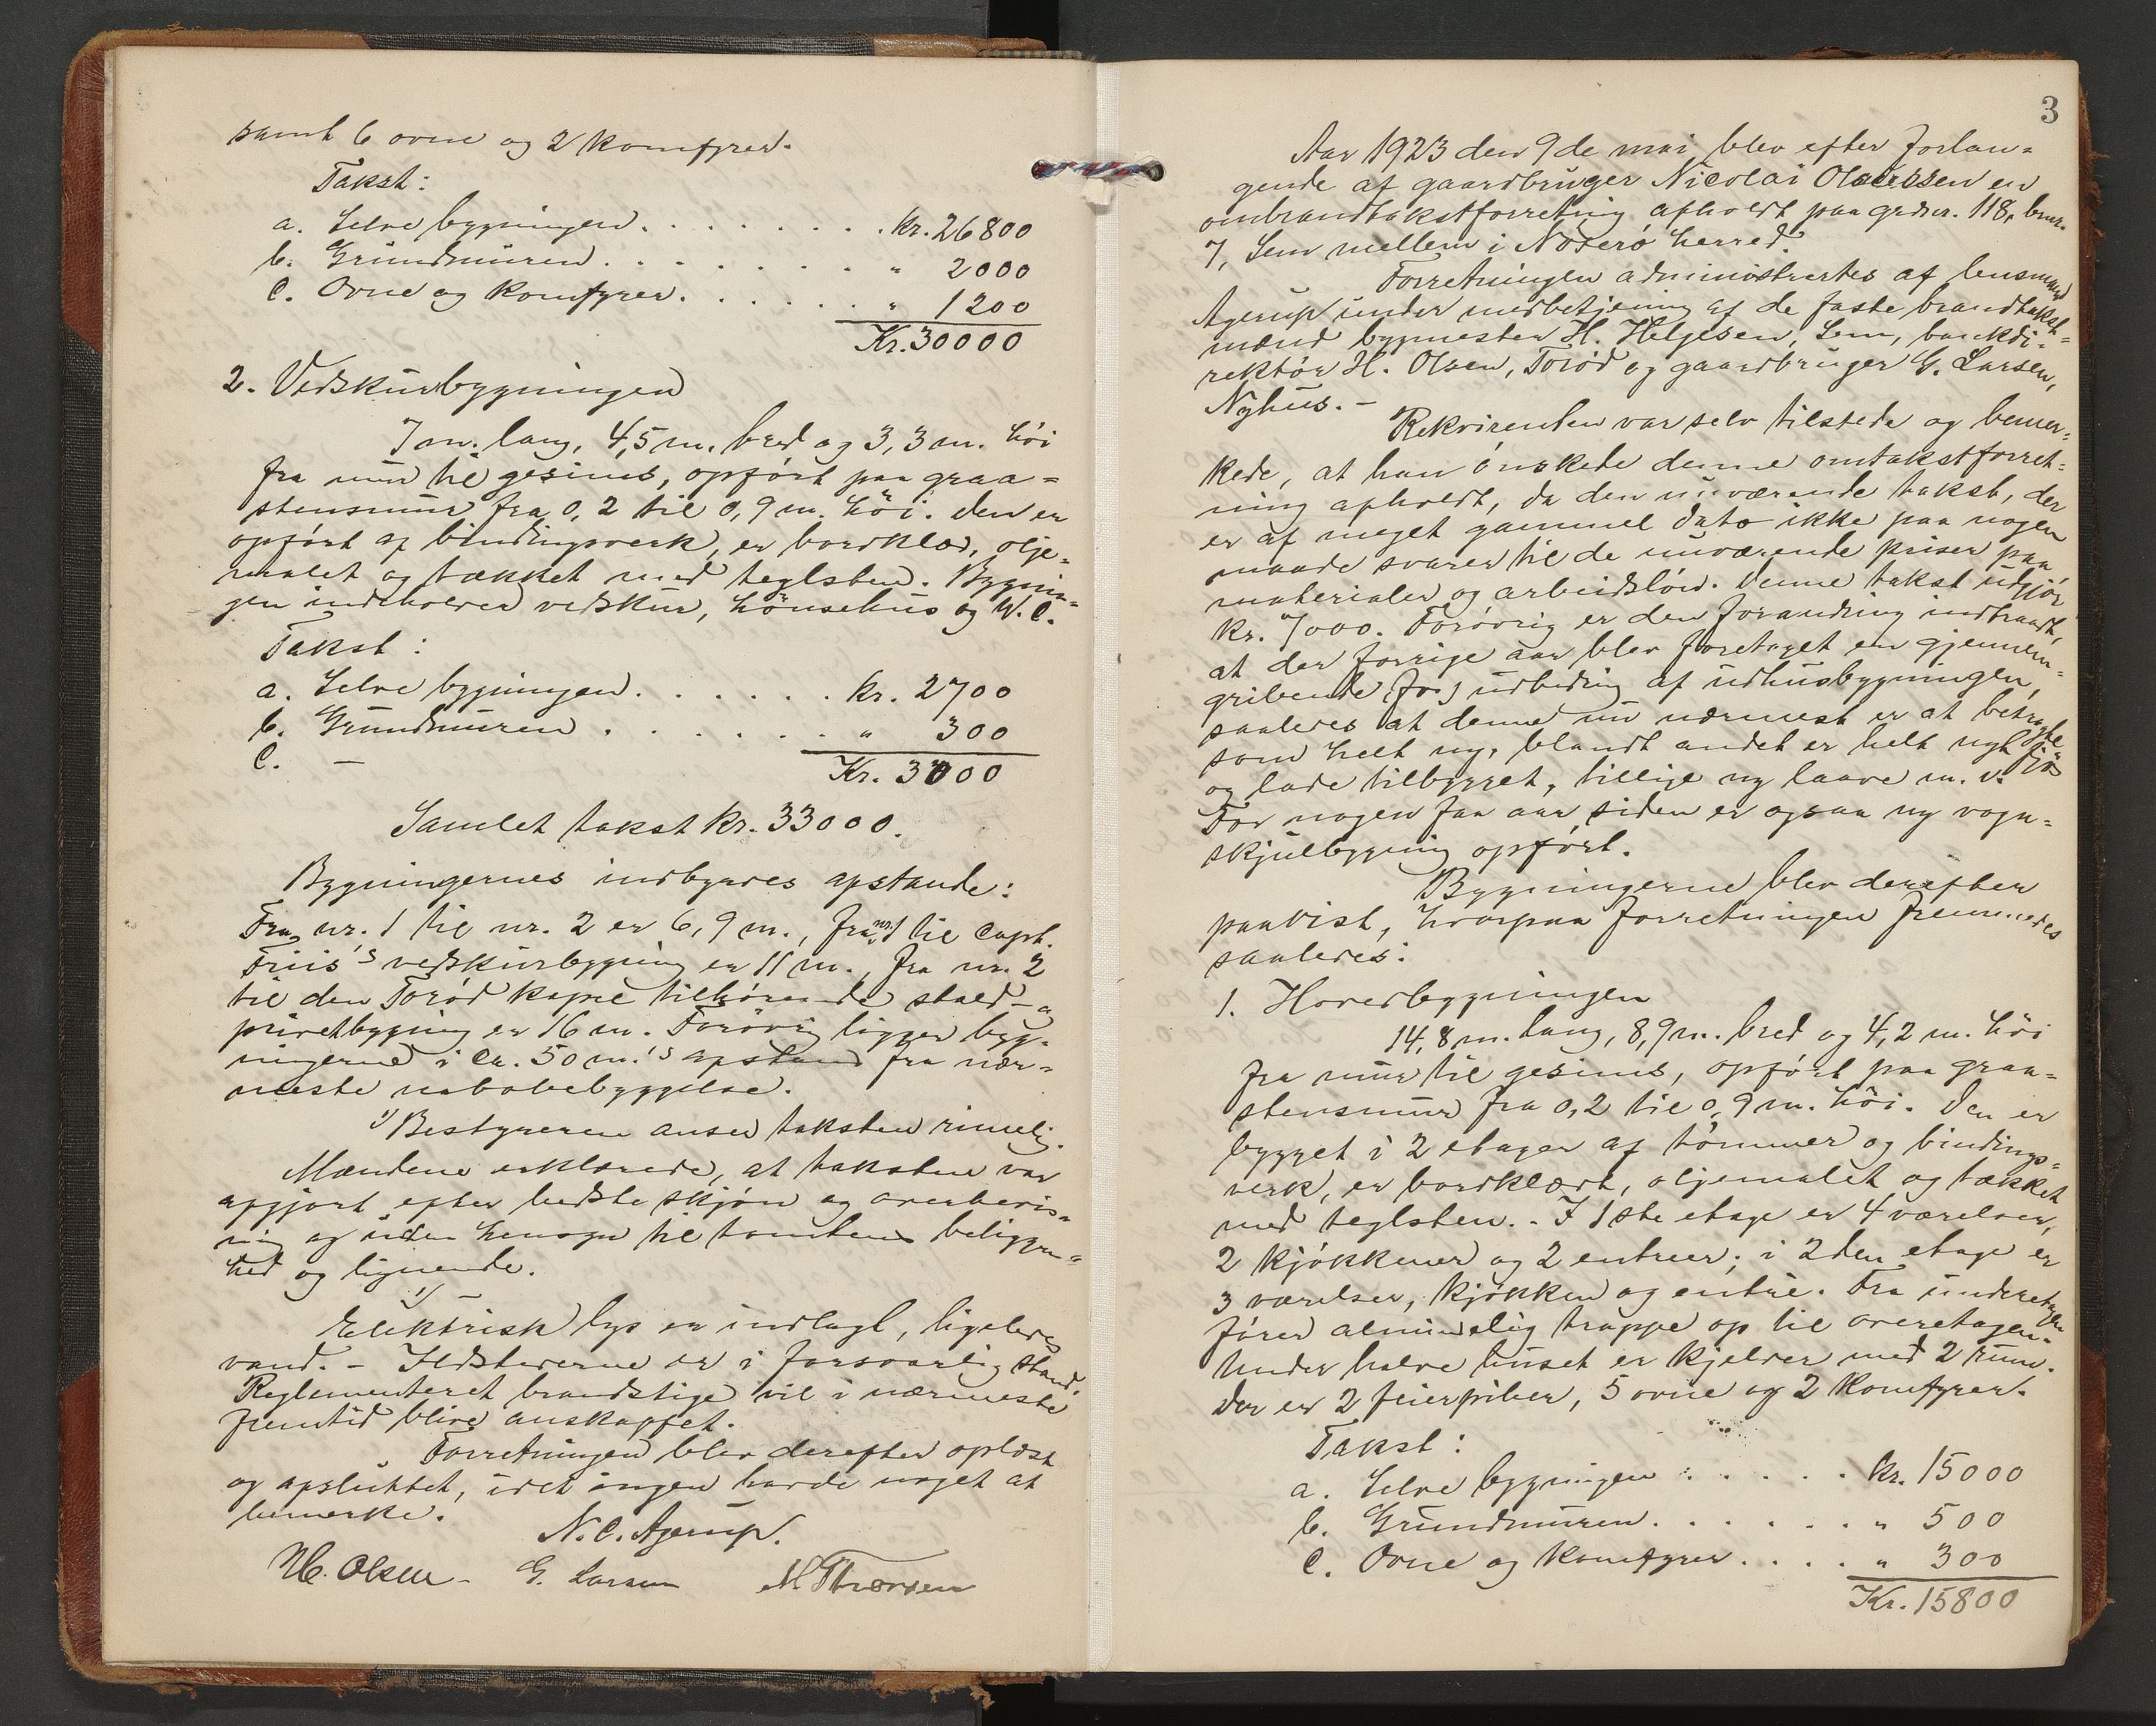 samt 6 ovne og 2 komfyrer.
Takst:
a. Selve bygningen. . . . . . . . kr. 26800
b. Grundmuren. . . . . . . . . " 2000
c. Ovne og komfyrer. . . . . . " 1200
Kr. 30000
2. Vedskurbygningen
7 m. lang, 4,5 m. bred og 3,3 m. høi
fra mur til gesims, opført paa graa=
stensmur fra 0,2 til 0,9 m. høi. Den er
opført af bindingsverk, er bordklæd, olje-
malet og tækket med teglsten. Bygnin-
gen indeholder vedskur, hønsehus og W.C.
Takst:
a. Selve bygningen. . . . . . . kr. 2700
b. Grundmuren . . . . . . . " 300
c. —
Kr. 3000
Samlet takst kr. 33000.
Bygningernes indbyrdes afstande:
Fra nr. 1 til nr. 2 er 6,9 m., fra nr. 1 til Capt.
Friis's vedskurbygning er 11 m., fra nr. 2
til den Torød kapel tilhørende stald- og
privetbygning er 16 m. Forøvrig ligger byg-
ningerne i ca. 50 m.'s afstand fra nær=
meste nabobebyggelse.
1) Bestyreren anser taksten rimelig.
Mændene erklærede, at taksten var
afgjort efter bedste skjøn og overbevis=
ning og uden hensyn til tomtens beliggen=
hed og lignende.
1)
Elektrisk lys er indlagt, ligeledes
vand. - Ildstederne er i forsvarlig stand.
Reglementeret brandstige vil i nærmeste
fremtid blive anskaffet.
Forretningen blev derefter oplæst
og afsluttet, idet ingen havde noget at
bemerke.
N. C. Agerup.
H. Olsen - G. Larsen M Thorsen
3
Aar 1923 den 9de mai blev efter forlan=
gende af gaardbruger Nicolai Olaussen en
ombrandtakstforretning afholdt paa grdnr. 118, brnr.
7, Sem mellem i Nøterø herred.
Forretningen administrertes af lensmand
Agerup under medbetjening af de faste brandtakst=
mænd bygmester H. Helgesen, Sem, bankdi=
rektør H. Olsen, Torød og gaardbruger G. Larsen,
Nyhus. -
Rekvirenten var selv tilstede og bemer=
kede, at han ønskede denne omtakstforret=
ning afholdt, da den nuværende takst, der
er af meget gammel dato ikke paa nogen
maade svarer til de nuværende priser paa
materialer og arbeidsløn. Denne takst udgjør
kr. 7000. Forøvrig er den forandring indtraadt,
at der forrige aar blev foretaget en gjennem=
gribende (for) udbedring af udhusbygningen,
saaledes at denne nu nærmest er at betragte
som helt ny, blandt andet er helt nyt fjøs
og lade tilbygget, tillige ny laave m. v.
For nogen faa aar siden er ogsaa ny vogn=
skjulbygning opført.
Bygningerne blev derefter
paavist, hvorpaa forretningen fremmedes
saaledes:
1. Hovedbygningen
14,8 m. lang, 8,9 m. bred og 4,2 m. høi
fra mur til gesims, opført paa graa=
stensmur fra 0,2 til 0,9 m. høi. Den er
bygget i 2 etager af tømmer og bindings=
verk, er bordklædt, oljemalet og tækket
med teglsten. - I 1ste etage er 4 værelser,
2 kjøkkener og 2 entreer; i 2den etage er
3 værelser, kjøkken og entré. Fra underetagen
fører almindelig trappe op til overetagen.
Under halve huset er kjelder med 2 rum.
Der er 2 feierpiber, 5 ovne og 2 komfyrer.
Takst:
a. Selve bygningen . . . . . kr. 15000
b. Grundmuren. . . . . . . " 500
c. Ovne og komfyrer. . . . " 300
Kr. 15800